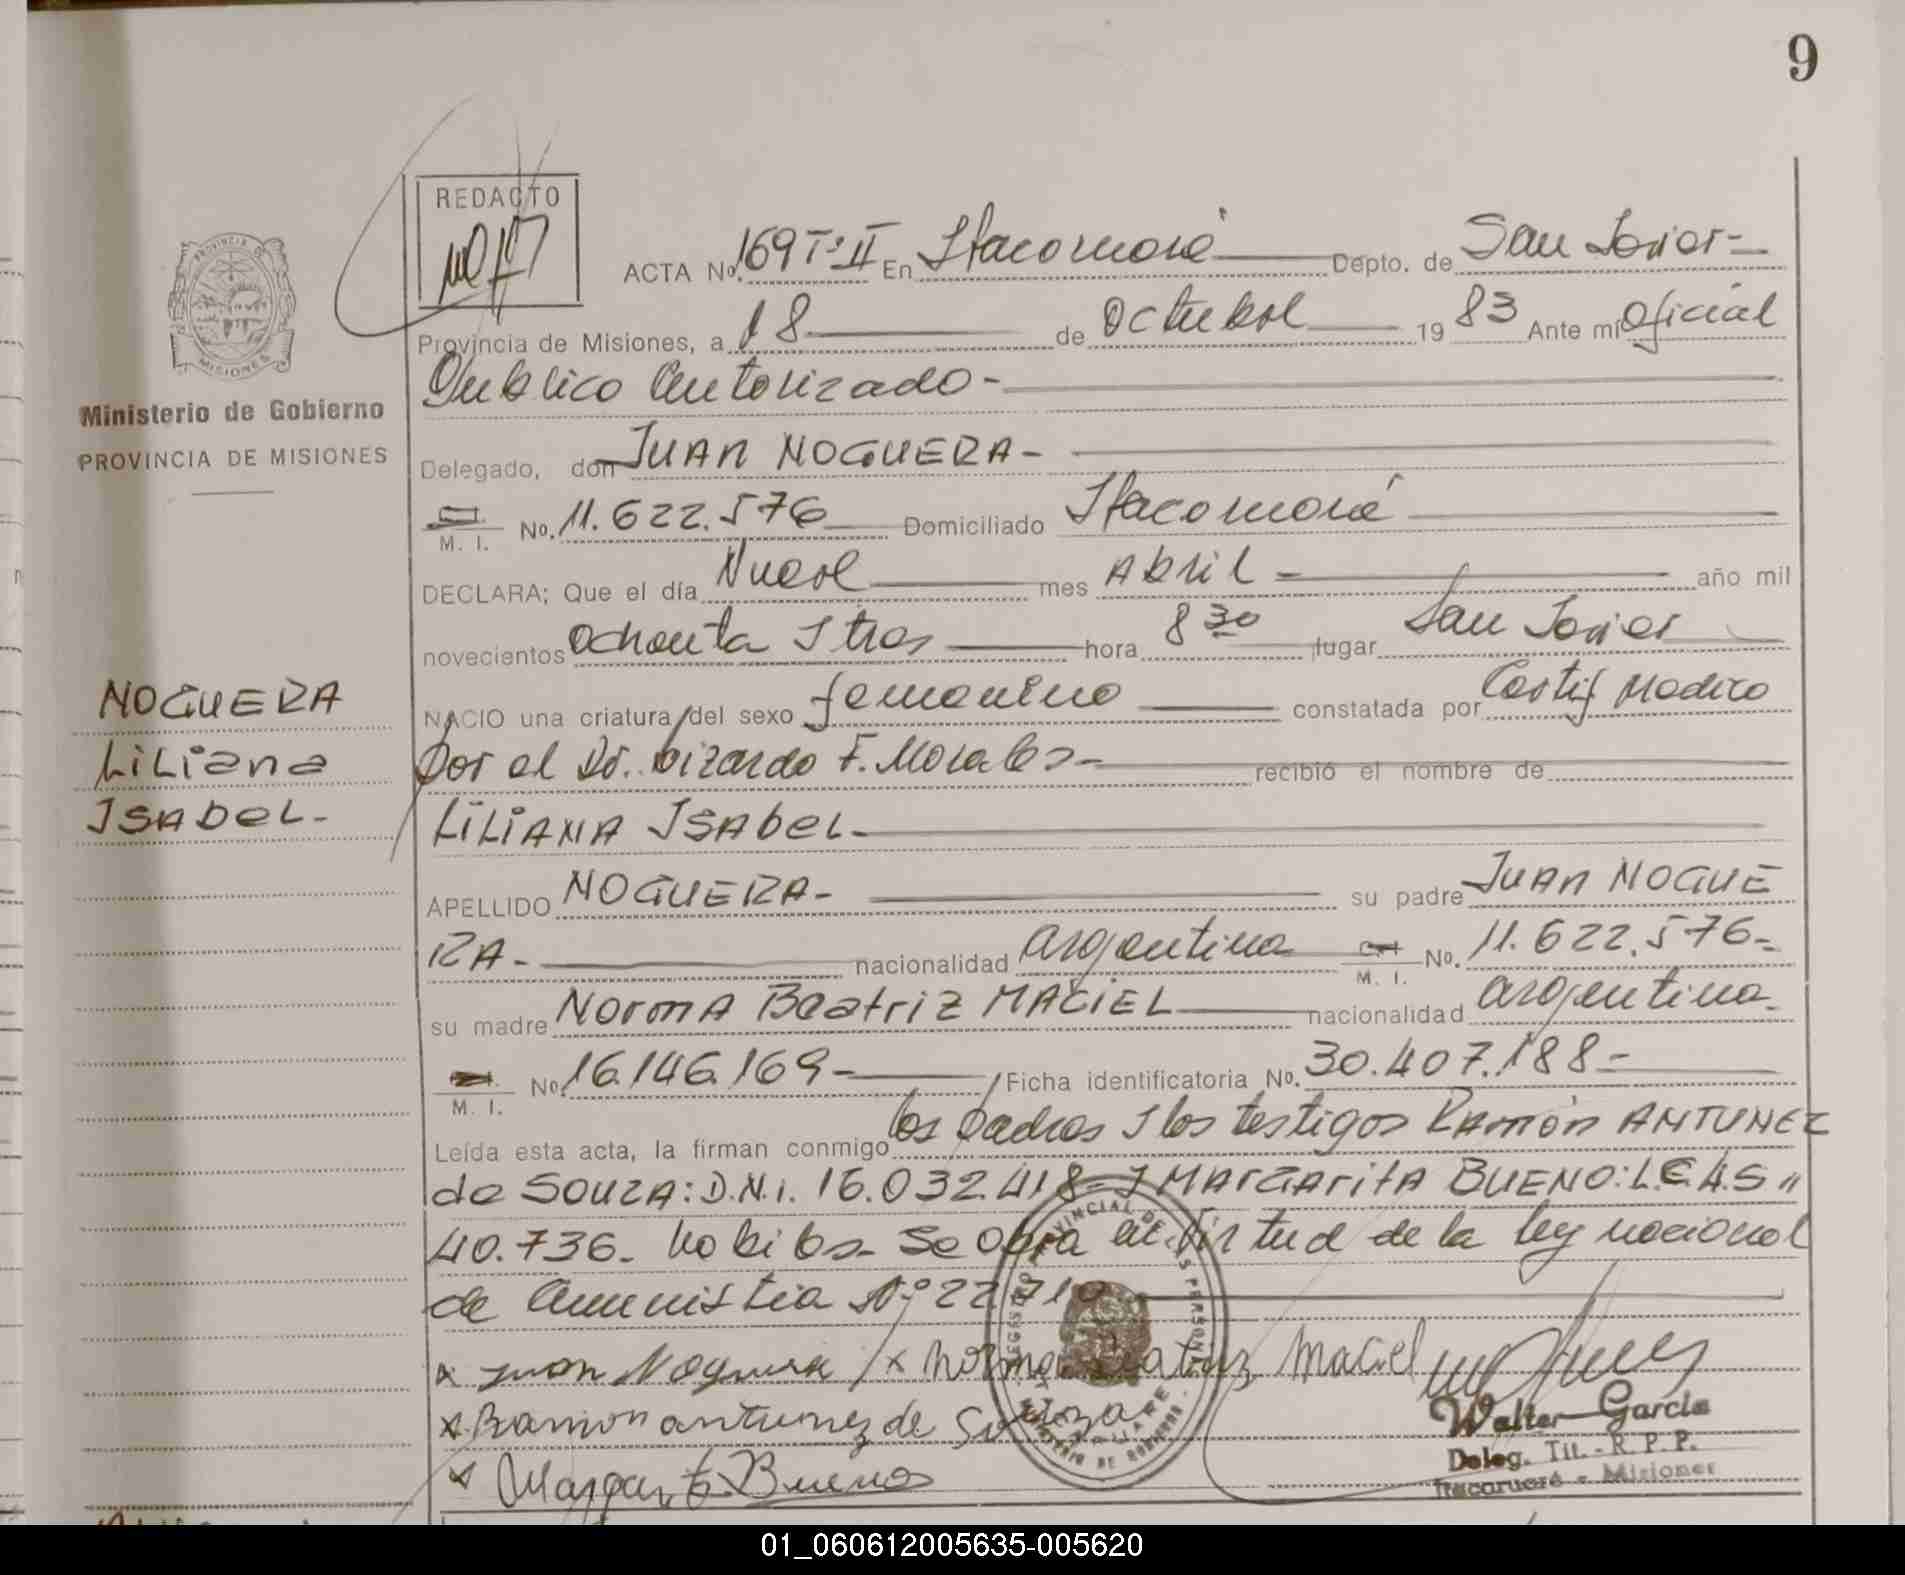 9
REDACTO
ACTA No. 169 Tº II En Itacaruaré Depto. de San Javier-
Provincia de Misiones, a 18 de Octubre 19 83 Ante mi Oficial
Público Autorizado-
Delegado, don JUAN NOGUERA-
M. I. No. 11.622.576 Domiciliado Itacaruaré
DECLARA; Que el día Nueve mes Abril - año mil
novecientos Ochenta y tres hora 8 30 lugar San Javier
NACIO una criatura del sexo femenino constatada por Certif Medico
por el Dr. Lizardo F. Morales- recibió el nombre de
LILIANA ISABEL-
APELLIDO NOGUERA- su padre JUAN NOGUE
RA- nacionalidad argentina M. I. No. 11.622.576-
su madre Norma Beatriz MACIEL nacionalidad argentina-
M. I. No. 16.146.169- Ficha identificatoria No. 30.407.188-
Leída esta acta, la firman conmigo los padres y los testigos Ramón ANTUNEZ
de SOUZA: D.N.i. 16.032.418- y MARGARITA BUENO: L.C. 4.5"
40.736- habiles- Se obra en virtud de la ley nacional
de Amnistia Nº 22.710
x Juan Noguera x Norma Beatriz Maciel
x Ramon antunez de Souza
x Margarita Bueno
Walter Garcia
Deleg. Tit. - R. P. P.
Itacaruaré - Misiones
PROVINCIA DE MISIONES
Ministerio de Gobierno
PROVINCIA DE MISIONES
NOGUERA
Liliana
ISABEL-
REGISTRO PROVINCIAL DE LAS PERSONAS
ITACARUARE
MINISTERIO DE GOBIERNO
01_060612005635-005620